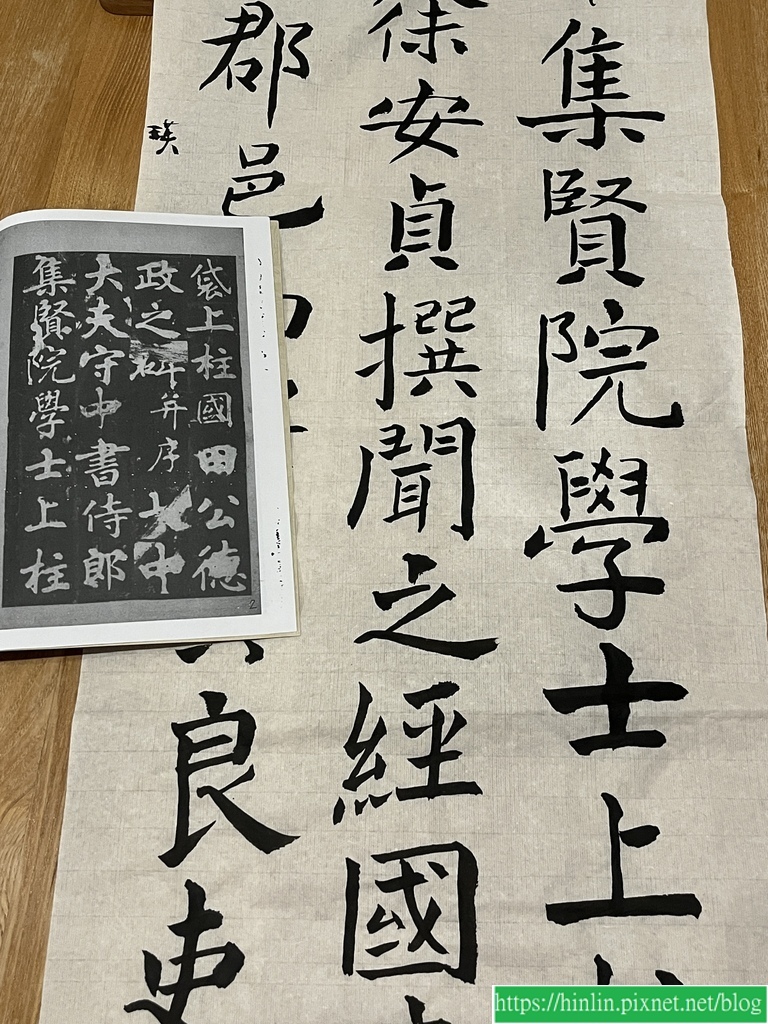 集賢院學士上
徐安貞撰聞之經國
郡邑
良吏
袋上柱國田公德
政之碑并序大中
大夫守中書侍郎
集賢院學士上柱
2
https://hinlin.pixnet.net/blog